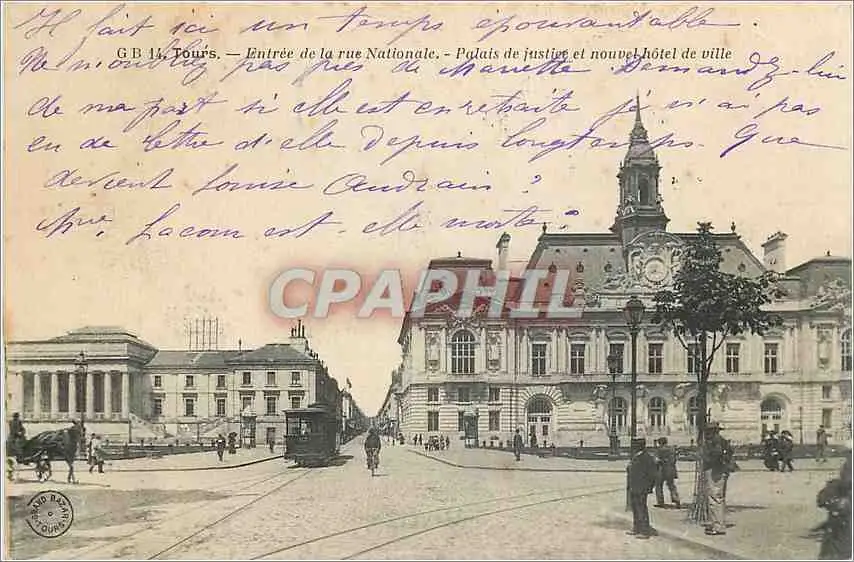 Il fait ici un temps épouvantable.
G B 14. Tours. — Entrée de la rue Nationale. - Palais de justice et nouvel hôtel de ville
Ne m'oubliez pas près de Mariette. Demandez-lui
de ma part si elle est en retraite je n'ai pas
eu de lettre d'elle depuis longtemps. Que
devient Louise Audrain ?
Mme Lacom est-elle morte ?
CPARAMA.COM
GRAND BAZAR
TOURS